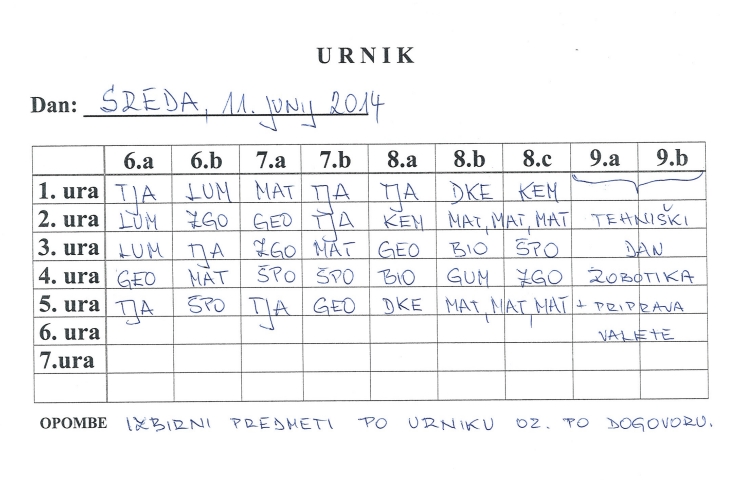 URNIK
Dan: SREDA, 11. junij 2014
6.a 6.b 7.a 7.b 8.a 8.b 8.c 9.a 9.b
1. ura TJA LUM MAT TJA TJA DKE KEM
2. ura LUM ZGO GEO TJA KEM MAT, MAT, MAT TEHNIŠKI
3. ura LUM TJA ZGO MAT GEO BIO ŠPO DAN
4. ura GEO MAT ŠPO ŠPO BIO GUM ZGO ROBOTIKA
5. ura TJA ŠPO TJA GEO DKE MAT, MAT, MAT + PRIPRAVA
6. ura VALETE
7.ura
OPOMBE IZBIRNI PREDMETI PO URNIKU OZ. PO DOGOVORU.